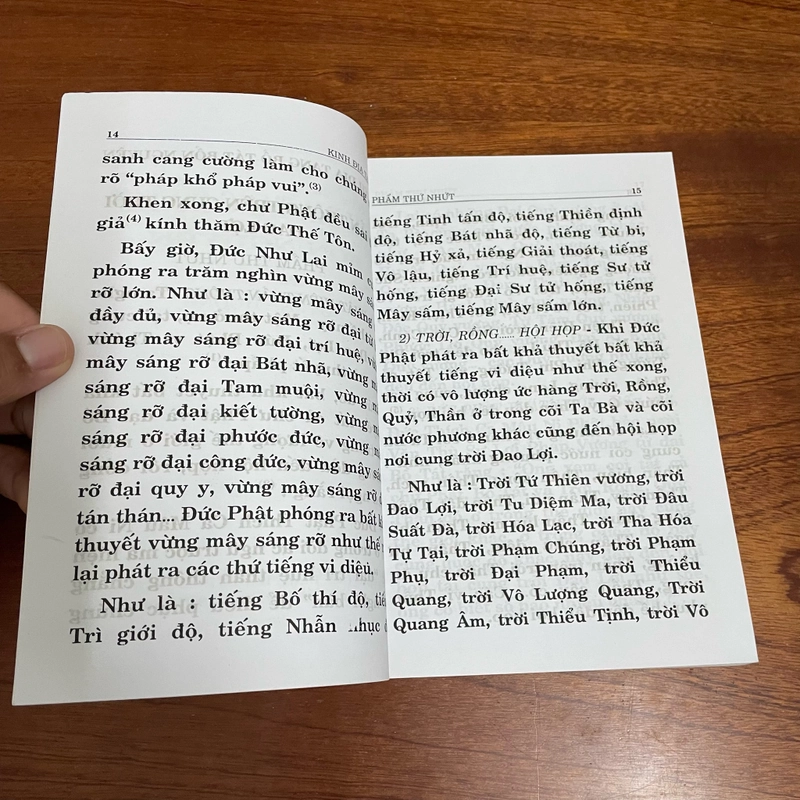 14
KINH ĐỊA
sanh cang cường làm cho chúng
rõ “pháp khổ pháp vui”.(3)
Khen xong, chư Phật đều sai
giả(4) kính thăm Đức Thế Tôn.
Bấy giờ, Đức Như Lai mỉm
phóng ra trăm nghìn vừng mây
rỡ lớn. Như là : vừng mây sáng
đầy đủ, vừng mây sáng rỡ đại
vừng mây sáng rỡ đại trí huệ,
mây sáng rỡ đại Bát nhã, vừng
sáng rỡ đại Tam muội, vừng
sáng rỡ đại kiết tường, vừng
sáng rỡ đại phước đức, vừng
sáng rỡ đại công đức, vừng mây
rỡ đại quy y, vừng mây sáng rỡ
tán thán... Đức Phật phóng ra bất
thuyết vừng mây sáng rỡ như thế
lại phát ra các thứ tiếng vi diệu.
Như là : tiếng Bố thí độ,
Trì giới độ, tiếng Nhẫn nhục
PHẨM THỨ NHỨT
15
tiếng Tinh tấn độ, tiếng Thiền định
độ, tiếng Bát nhã độ, tiếng Từ bi,
tiếng Hỷ xả, tiếng Giải thoát, tiếng
Vô lậu, tiếng Trí huệ, tiếng Sư tử
hống, tiếng Đại Sư tử hống, tiếng
Mây sấm, tiếng Mây sấm lớn.
2) TRỜI, RỒNG..... HỘI HỌP - Khi Đức
Phật phát ra bất khả thuyết bất khả
thuyết tiếng vi diệu như thế xong,
thời có vô lượng ức hàng Trời, Rồng,
Quỷ, Thần ở trong cõi Ta Bà và cõi
nước phương khác cũng đến hội họp
nơi cung trời Đao Lợi.
Như là : Trời Tứ Thiên vương, trời
Đao Lợi, trời Tu Diệm Ma, trời Đâu
Suất Đà, trời Hóa Lạc, trời Tha Hóa
Tự Tại, trời Phạm Chúng, trời Phạm
Phụ, trời Đại Phạm, trời Thiểu
Quang, trời Vô Lượng Quang, Trời
Quang Âm, trời Thiểu Tịnh, trời Vô